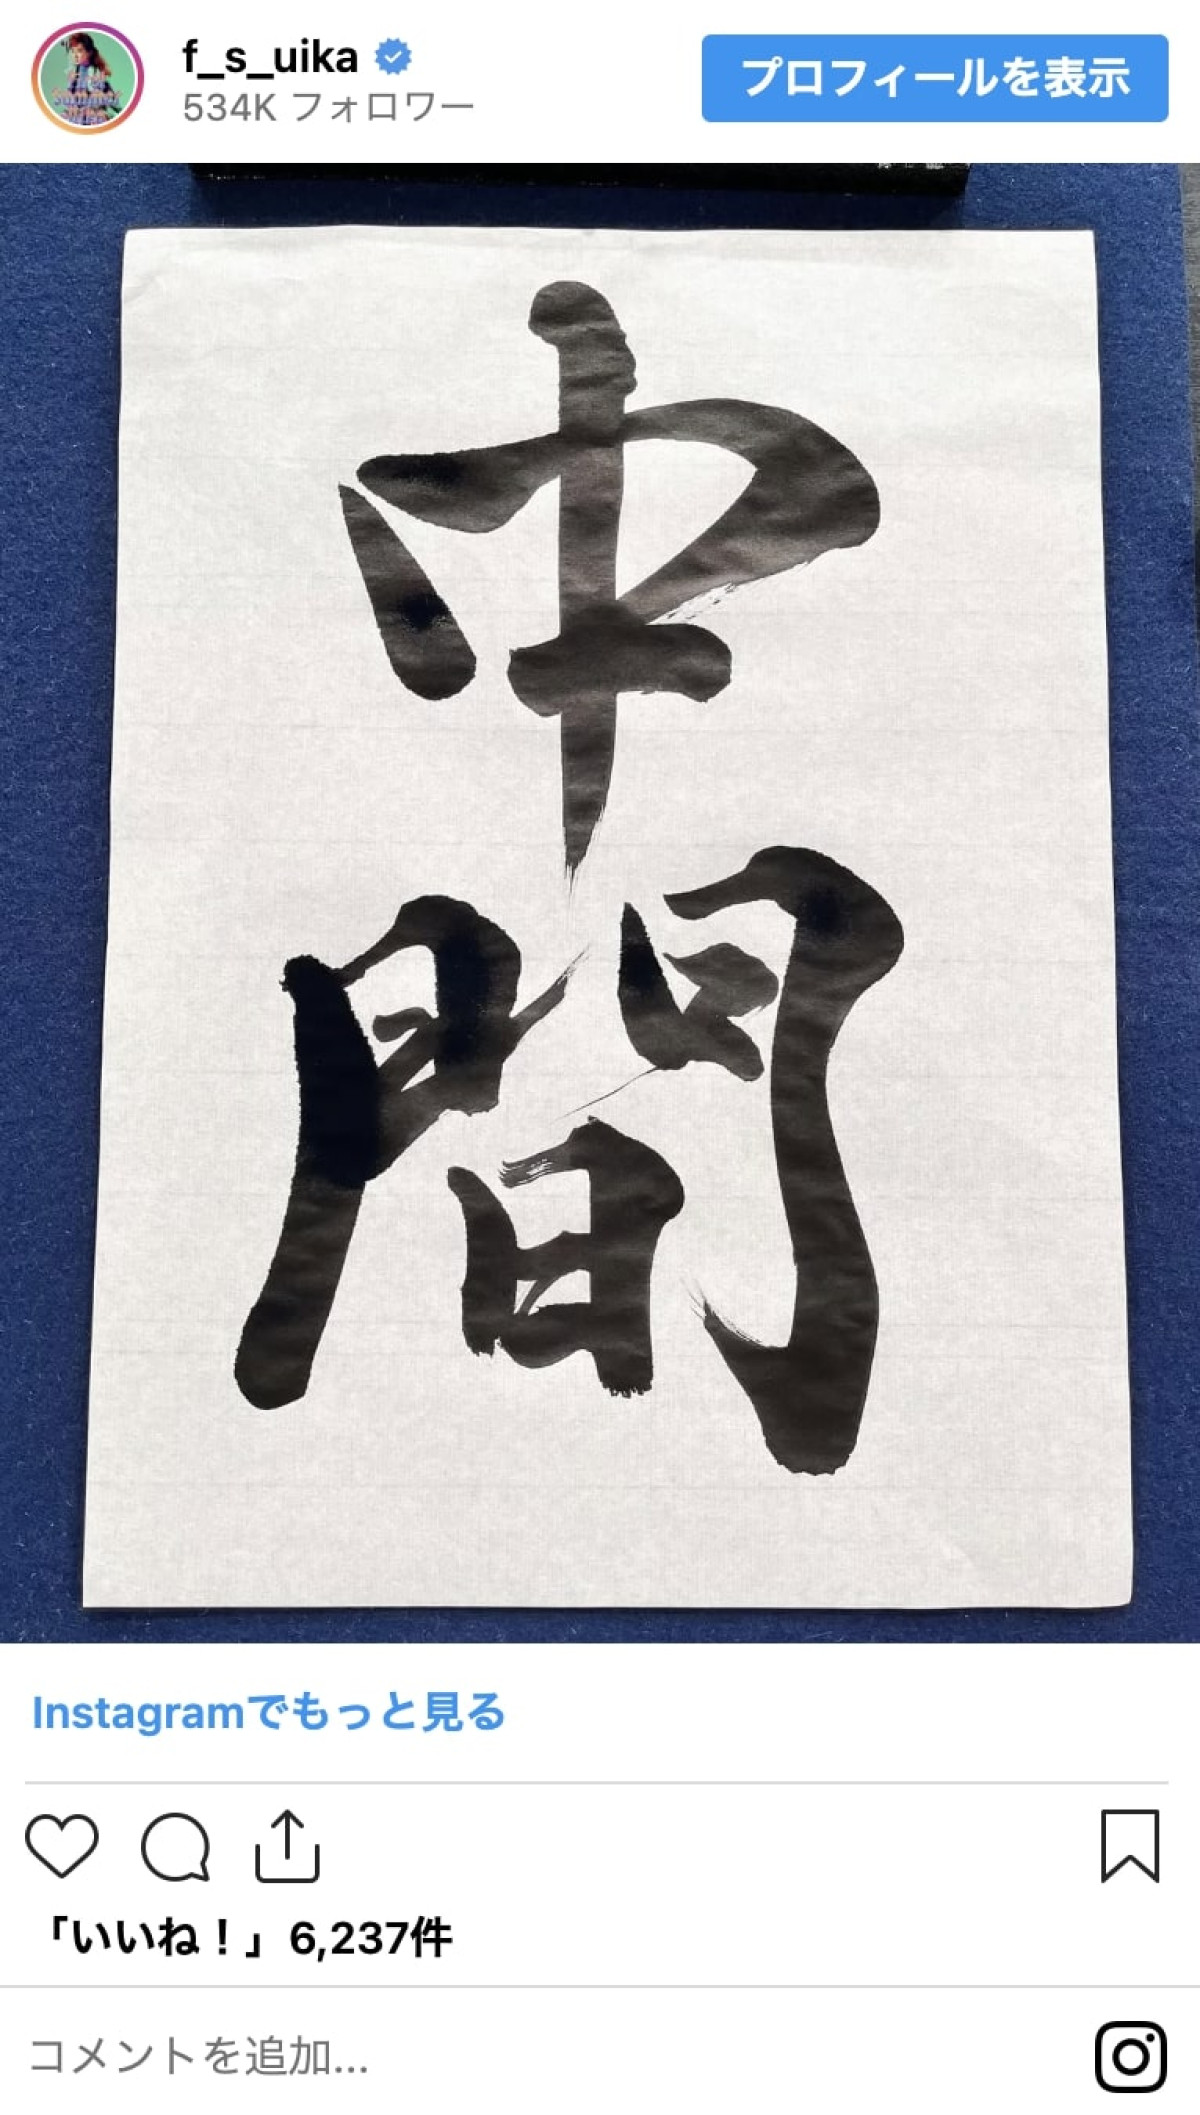 f_s_uika
534K フォロワー
プロフィールを表示
中
間
Instagramでもっと見る
「いいね！」6,237件
コメントを追加...